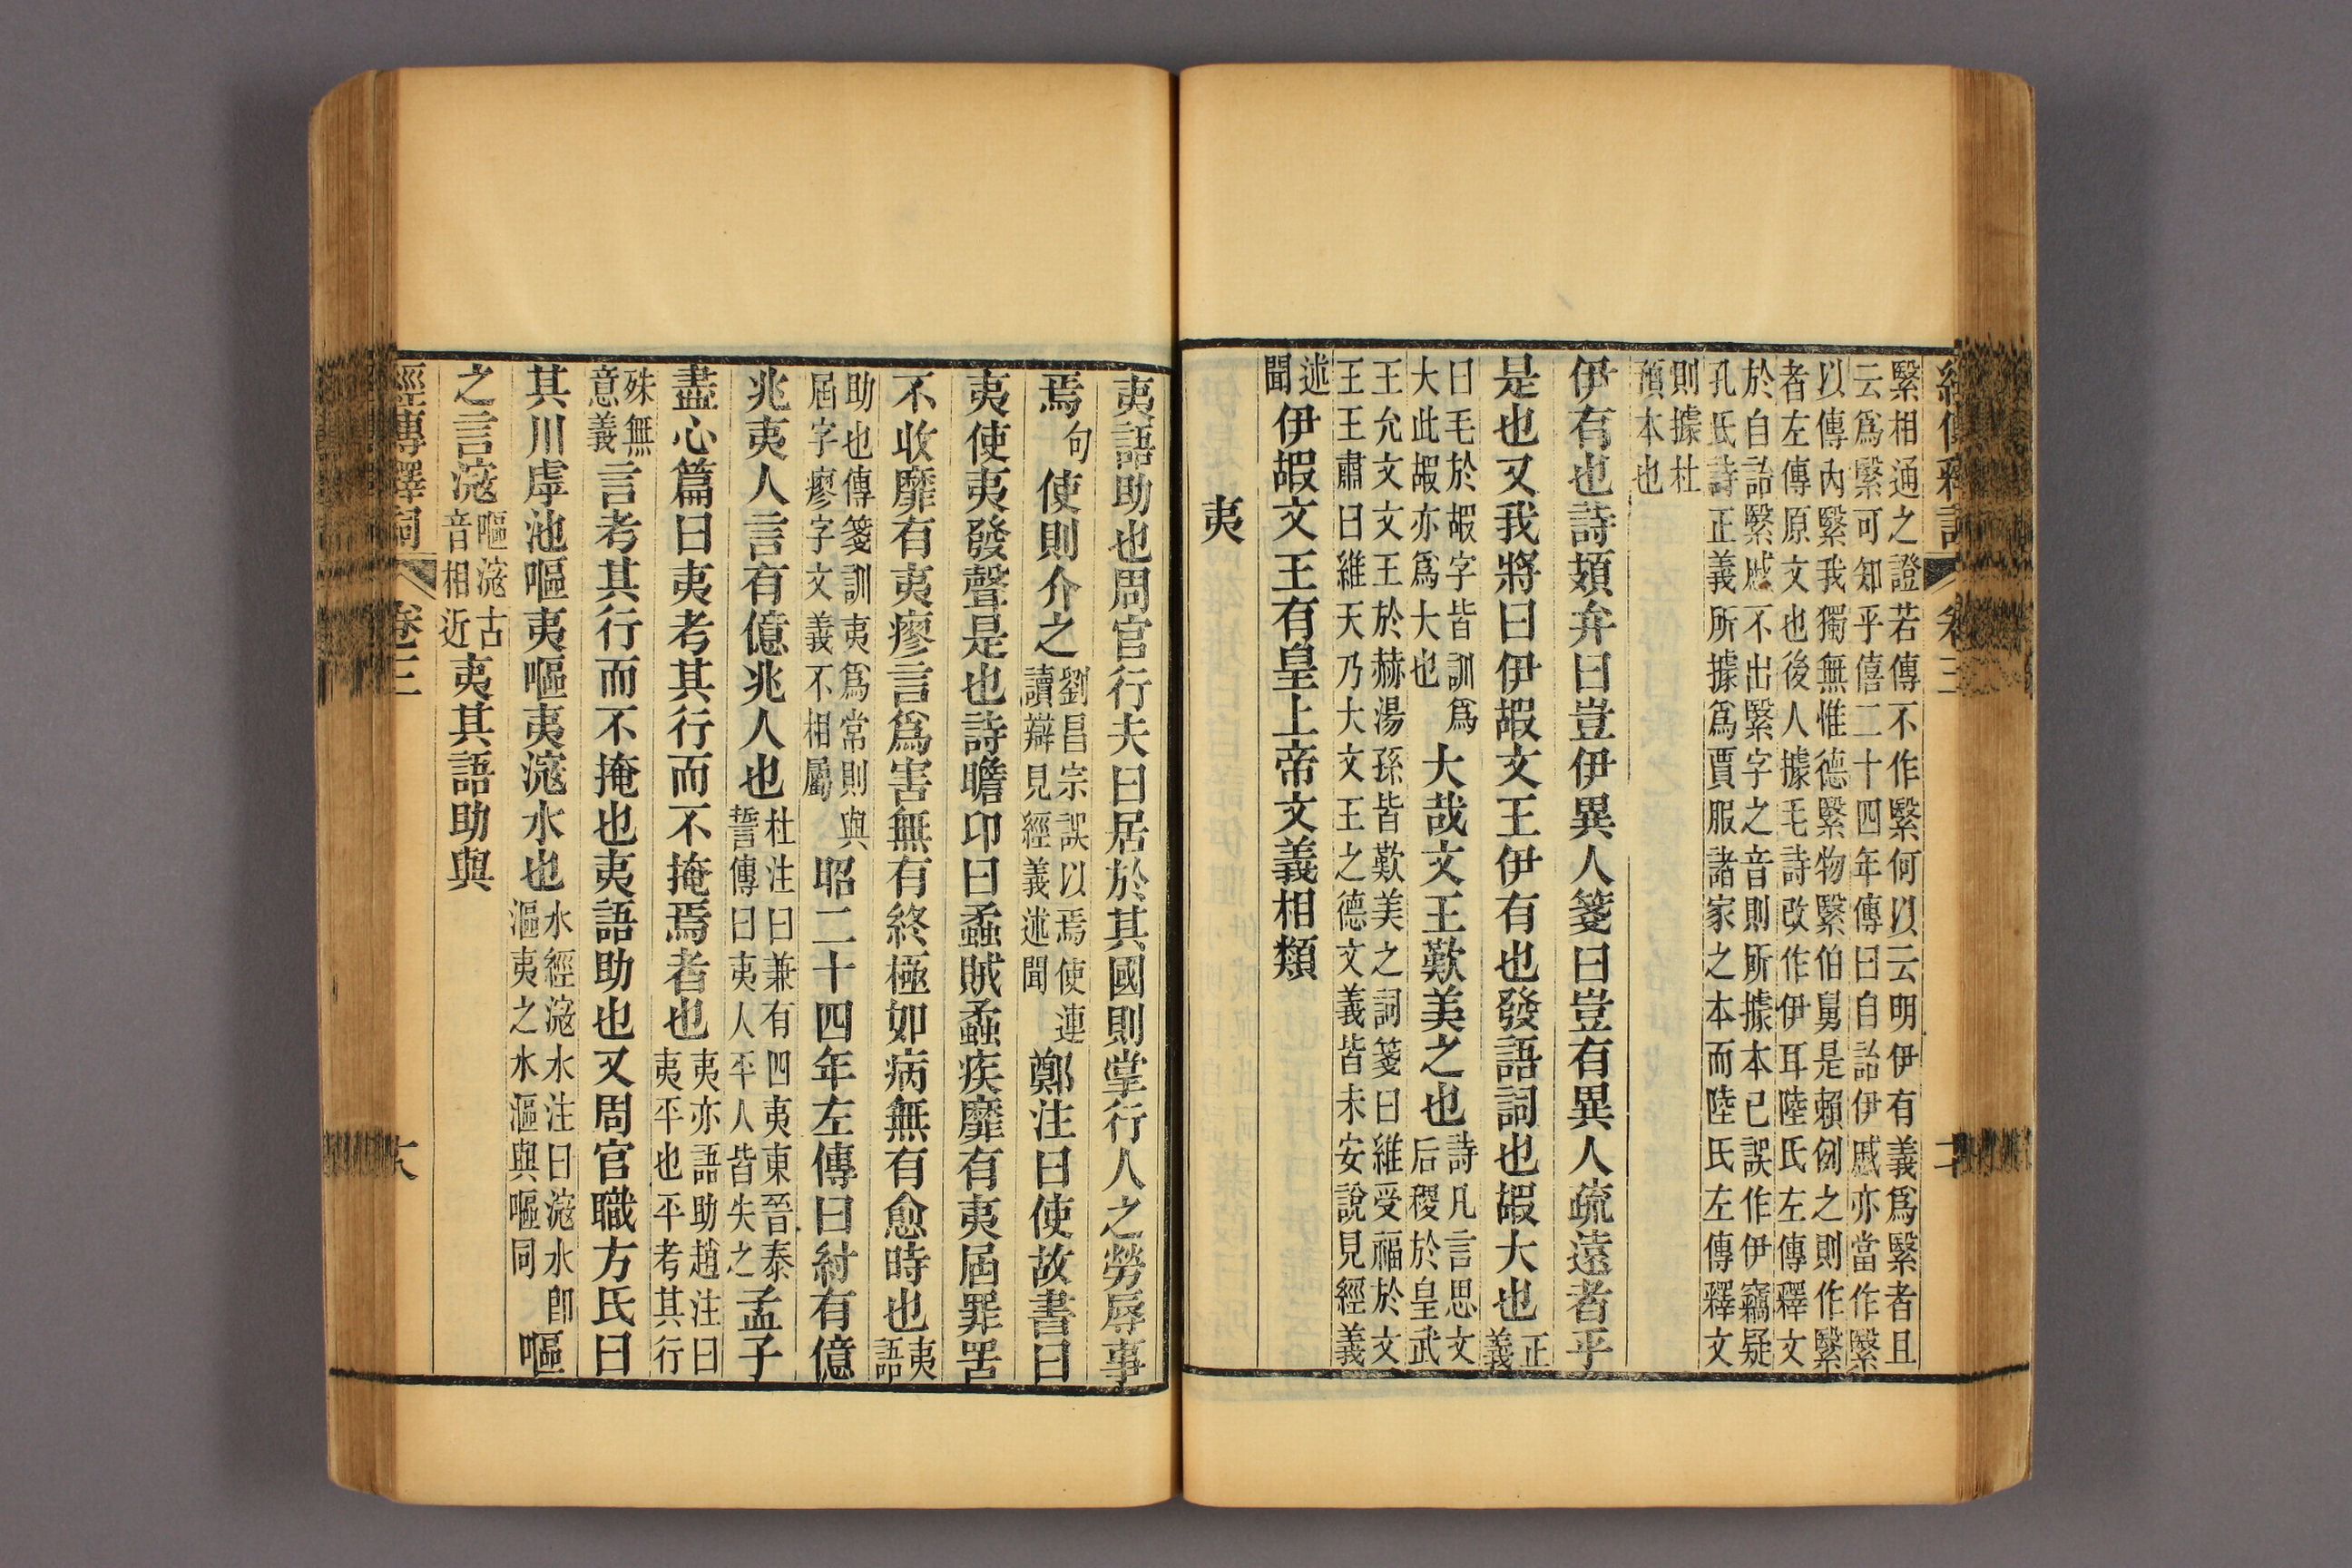 經傳釋詞 卷三
繄相通之證若傳不作繄何以云明伊有義爲繄者且
云爲繄可知乎僖二十四年傳曰自詒伊慼亦當作繄
以傳內繄我獨無惟德繄物繄伯舅是賴例之則作繄
者左傳原文也後人據毛詩改作伊耳陸氏左傳釋文
於自詒繄慼不出繄字之音則所據本已誤作伊竊疑
孔氏詩正義所據爲賈服諸家之本而陸氏左傳釋文
則據杜
預本也
伊有也詩頍弁曰豈伊異人箋曰豈有異人疏遠者乎
是也又我將曰伊嘏文王伊有也發語詞也嘏大也正義
曰毛於嘏字皆訓爲
大此嘏亦爲大也
大哉文王歎美之也
詩凡言思文
后稷於皇武
王允文文王於赫湯孫皆歎美之詞箋曰維受福於文
王王肅曰維天乃大文王之德文義皆未安說見經義
述聞伊嘏文王有皇上帝文義相類
夷
夷語助也周官行夫曰居於其國則掌行人之勞辱事
焉句使則介之
劉昌宗誤以焉使連
讀辯見經義述聞
鄭注曰使故書曰
夷使夷發聲是也詩瞻卬曰蟊賊蟊疾靡有夷屆罪罟
不收靡有夷瘳言爲害無有終極如病無有愈時也夷語
助也傳箋訓夷爲常則與
屆字瘳字文義不相屬
昭二十四年左傳曰紂有億
兆夷人言有億兆人也
杜注曰兼有四夷東晉泰
誓傳曰夷人平人皆失之
孟子
盡心篇曰夷考其行而不掩焉者也
夷亦語助趙注曰
夷平也平考其行
殊無
意義
言考其行而不掩也夷語助也又周官職方氏曰
其川虖池嘔夷嘔夷滱水也
水經滱水注曰滱水卽
漚夷之水漚與嘔同
嘔
之言滱
嘔滱古
音相近
夷其語助與
經傳釋詞 卷三 六